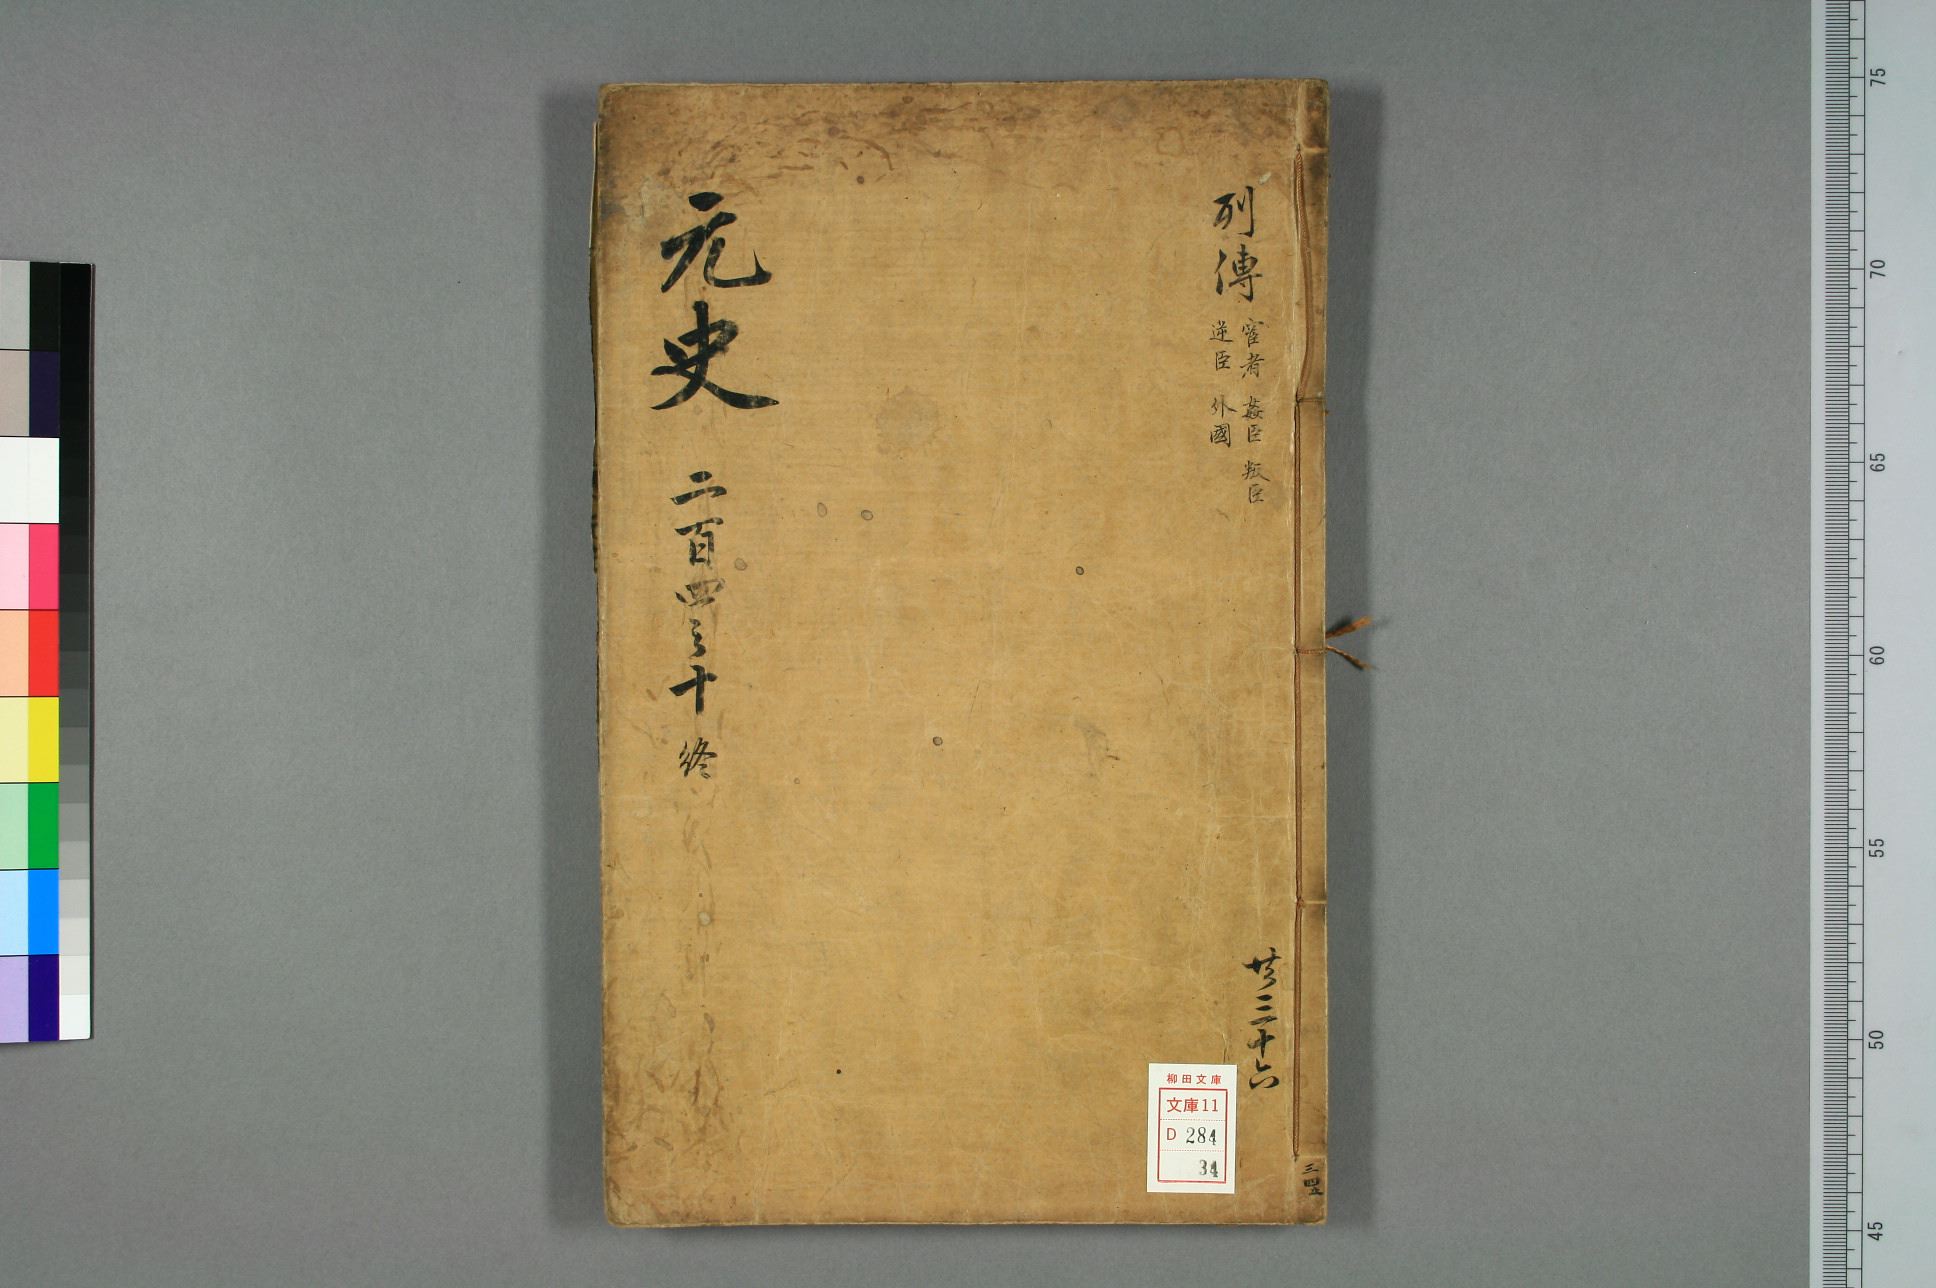 列傳
宦者 姦臣 叛臣
逆臣 外國
共三十六
元史 二百四之十 終
柳田文庫
文庫11
D 284
34
75
70
65
60
55
50
45